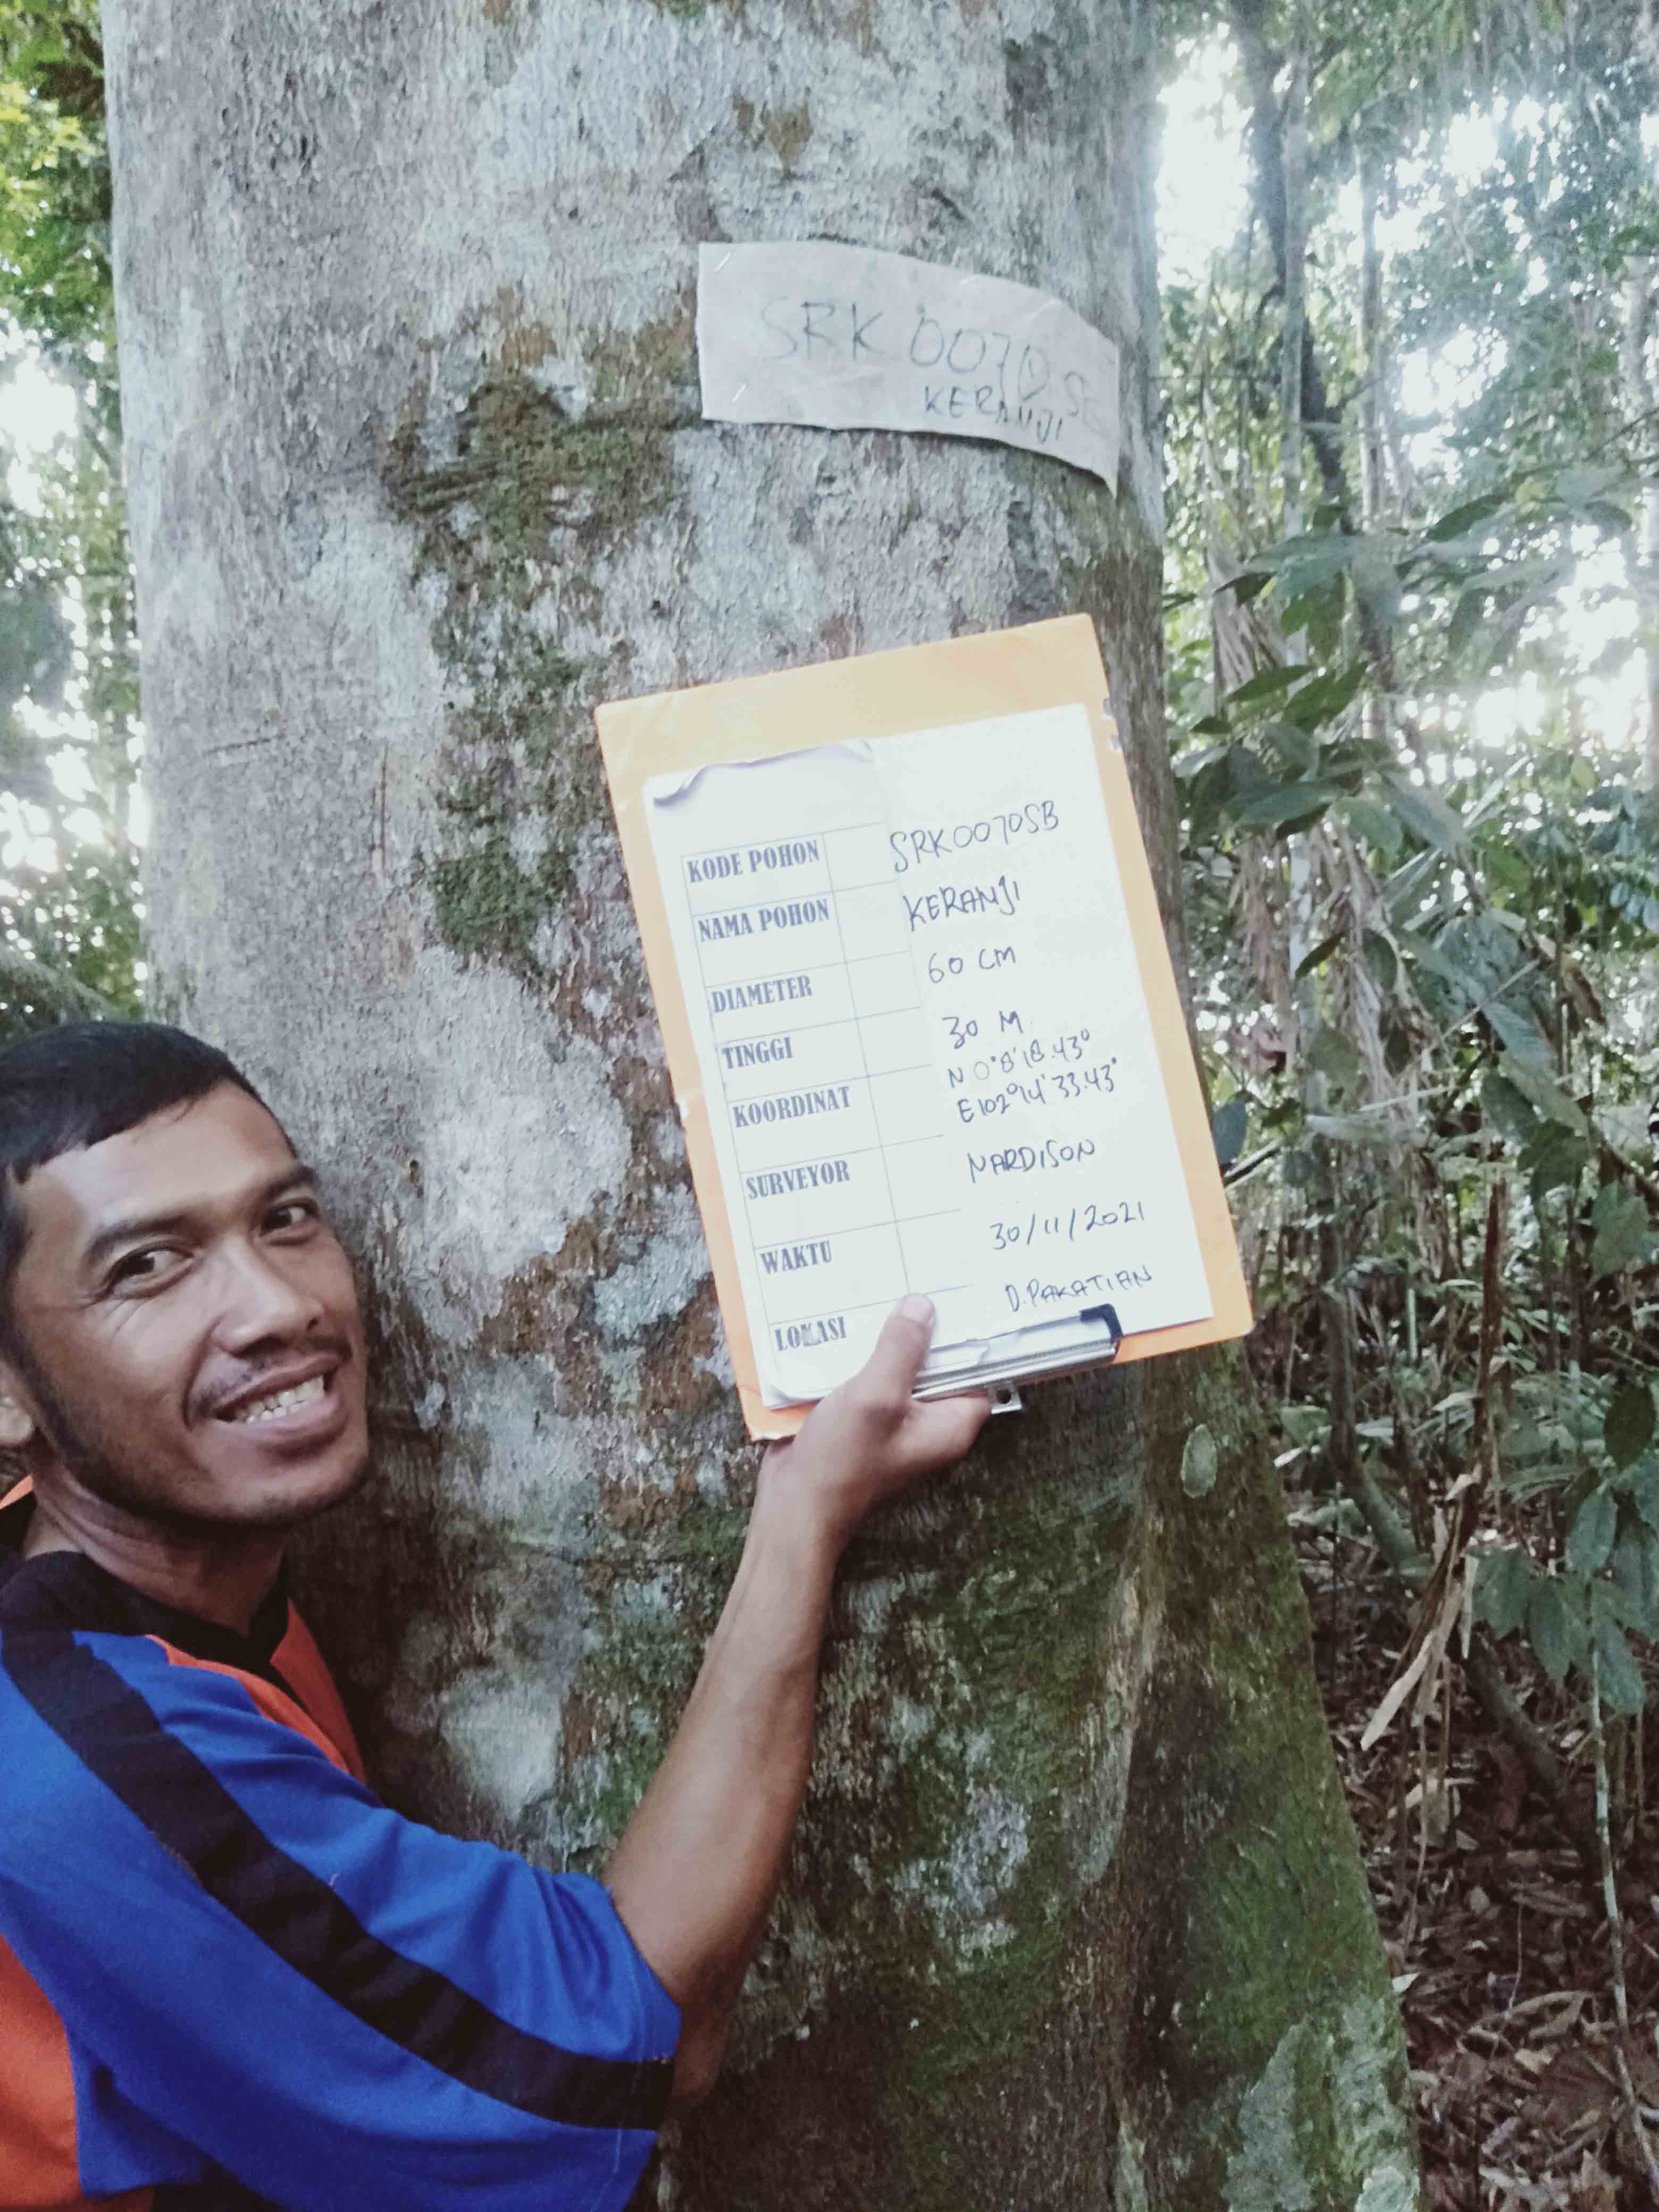 SRK 0070 SB
KERANJI
KODE POHON SRK0070SB
NAMA POHON KERANJI
DIAMETER 60 CM
TINGGI 30 M
KOORDINAT N 0°8'18.43°
E102°14'33.43°
SURVEYOR NARDISON
WAKTU 30/11/2021
LOKASI D.PAKATIAN